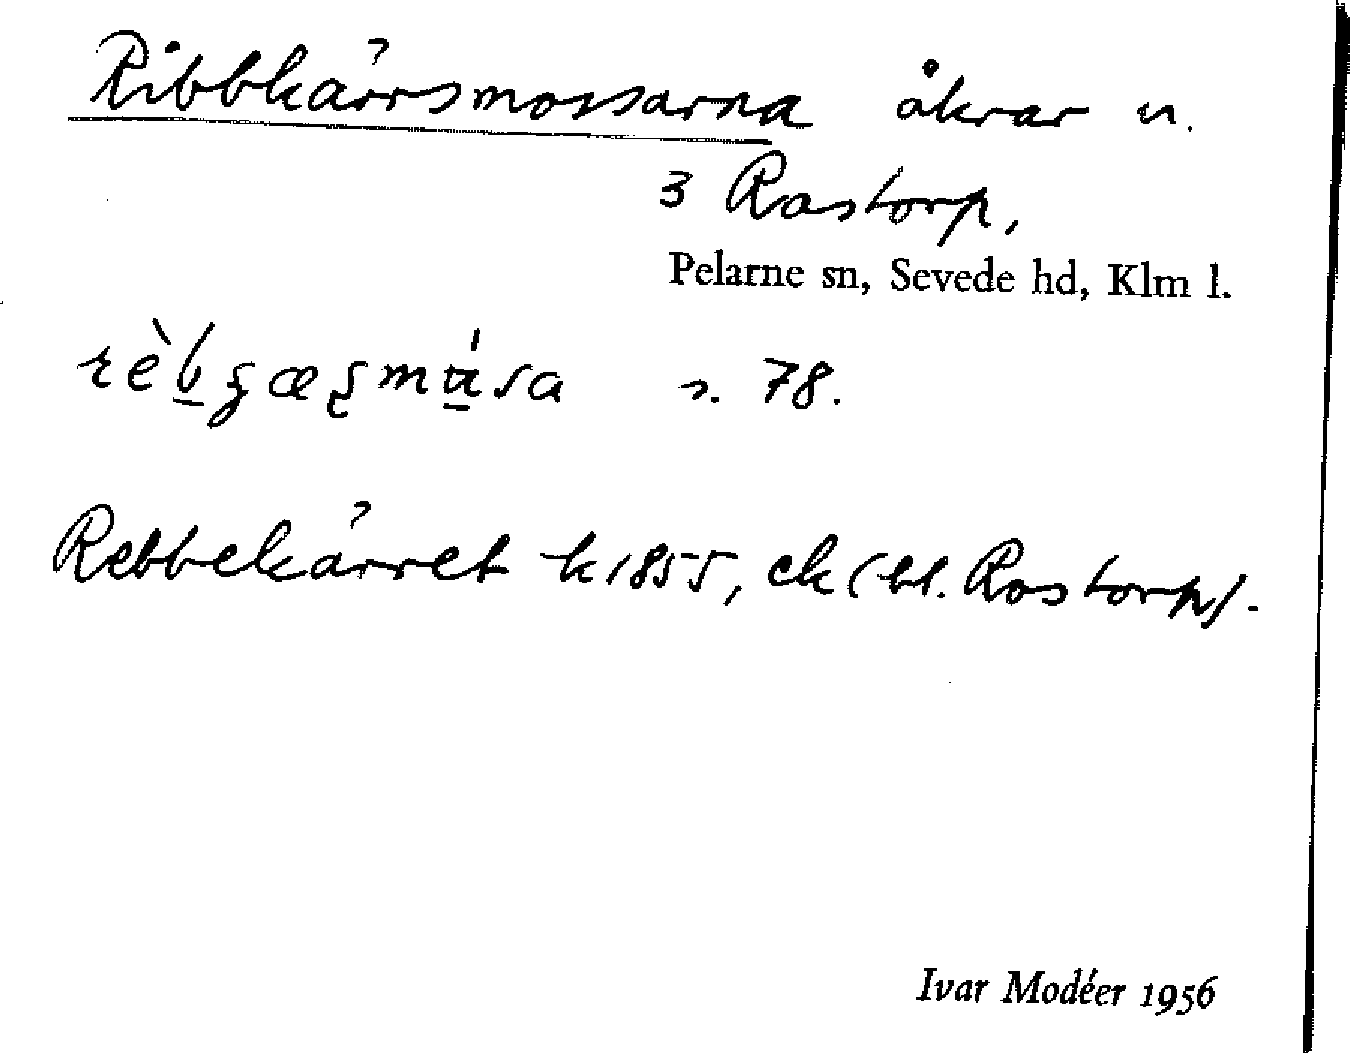 Ribbkärrsmossarna åkrar n.
3 Rastorp,
Pelarne sn, Sevede hd, Klm l.
s. 78.
Rebbekärret k 1855, ek (bl. Rastorp).
Ivar Modéer 1956